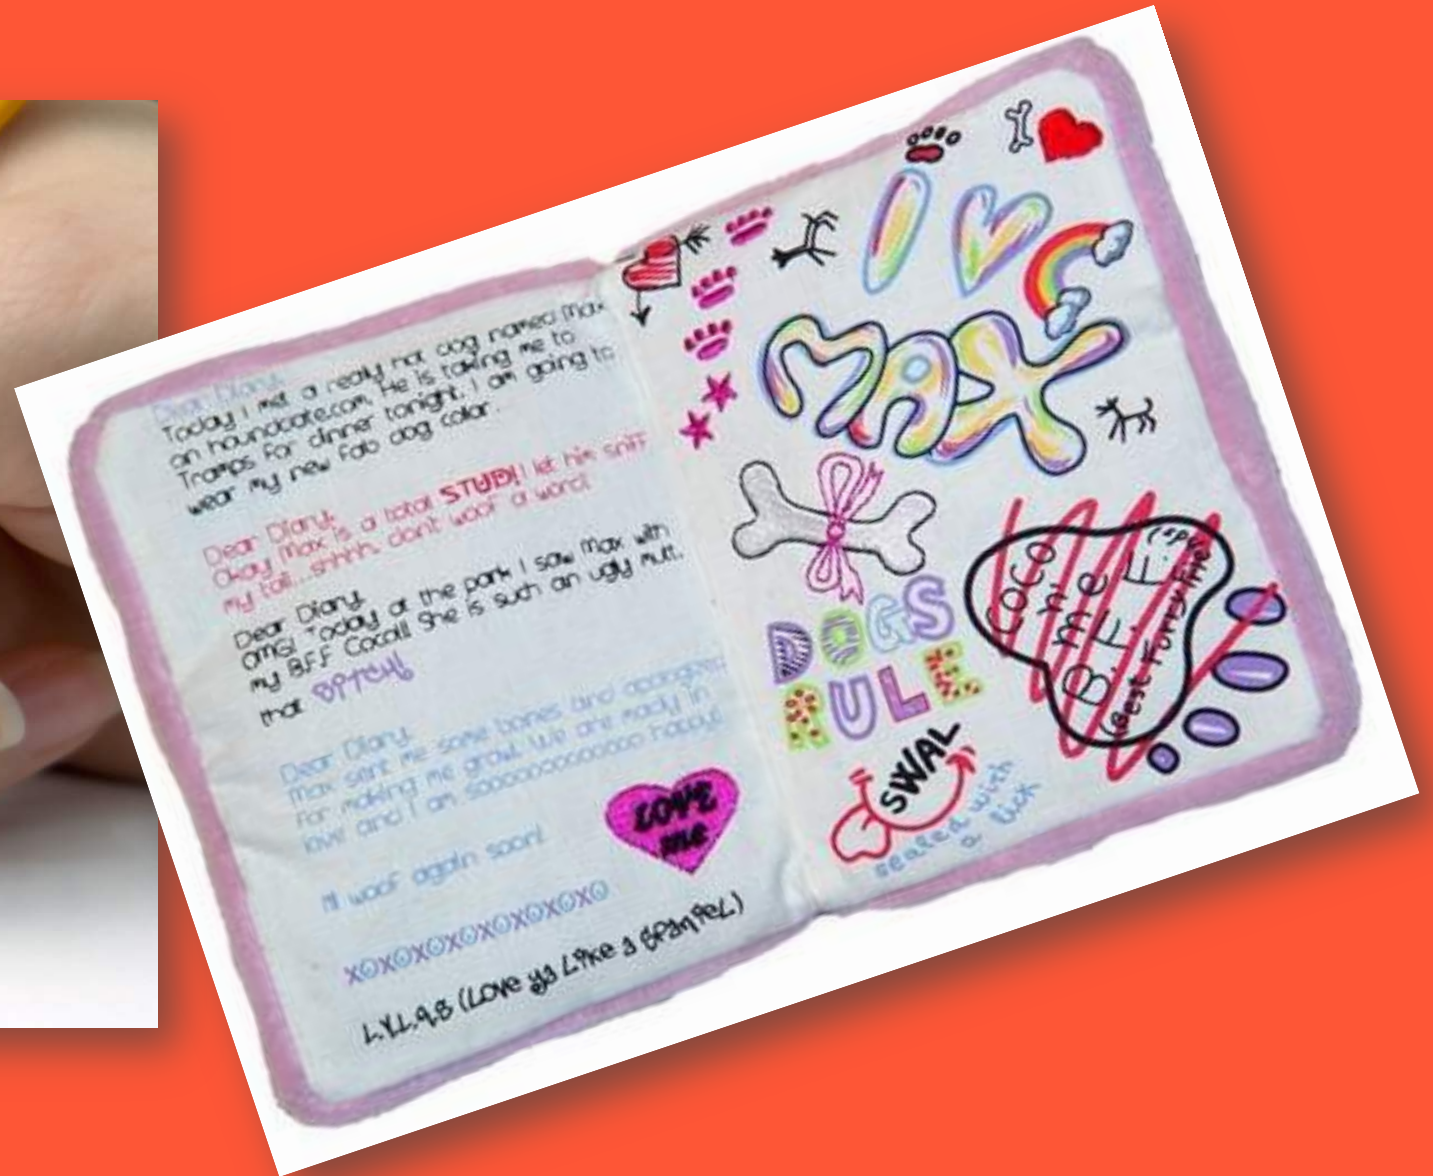 Dear Diary,
Today I met a really hot dog named Max
on hounddate.com. He is taking me to
Tramps for dinner tonight. I am going to
wear my new fab dog collar.
Dear Diary,
Okay! Max is a total STUD! I let him sniff
my tail...shhhh, don't woof a word!
Dear Diary,
OMG! Today at the park I saw Max with
my B.F.F Coco!!! She is such an ugly mutt,
that BITCH!
Dear Diary,
Max sent me some bones and apologized
for making me growl. We are madly in
love and I am soooooooooooo happy!
I'll woof again soon!
XOXOXOXOXOXOXO
L.Y.L.A.S (Love ya Like a SPaniel)
LOVE
me
I
MAX
DOGS
RULE
SWAL
sealed with
a lick
COCO
n'
me
B.F.F.F.
(Best Furry Friend